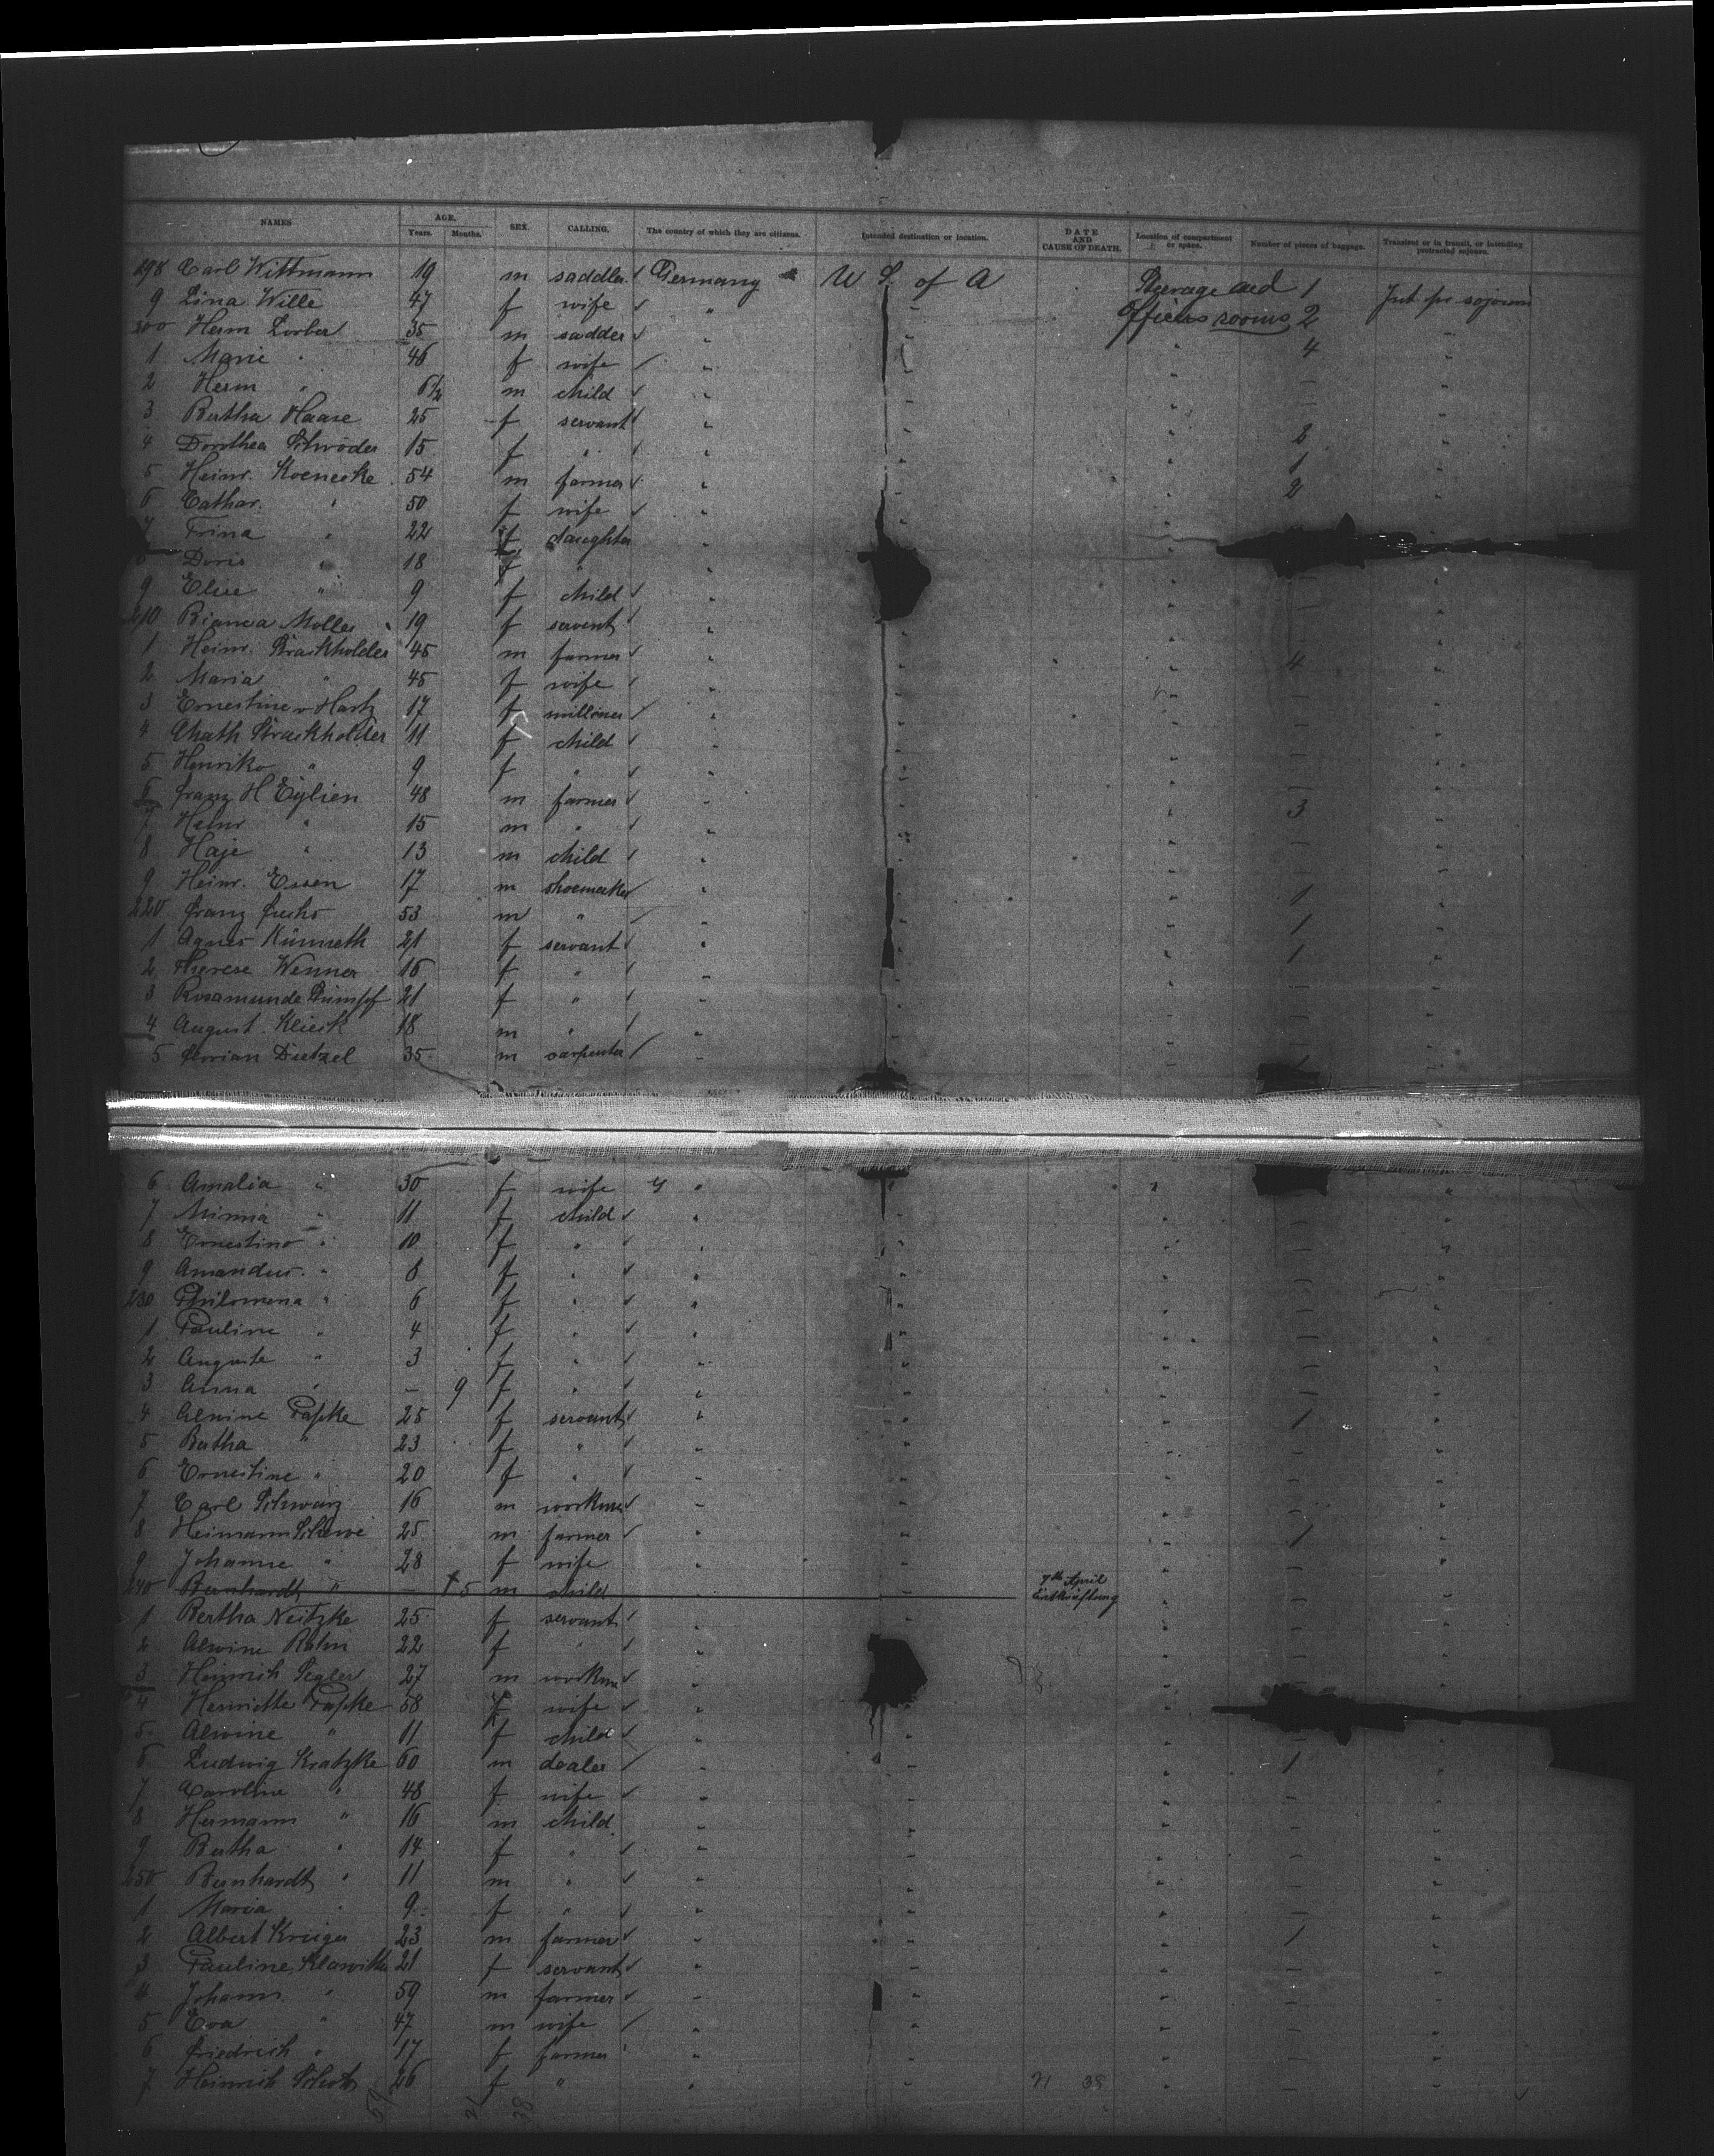 NAMES AGE. SEX. CALLING. The country of which they are citizens. Intended destination or location. DATE AND CAUSE OF DEATH. Location of compartment or space. Number of pieces of baggage. Transient or in transit, or intending protracted sojourn.
Years. Months.
298 Carl Wittmann 19 m saddler Germany U S of A Steerage and 1
9 Lina Wille 47 f wife " Officers rooms 2
300 Herm 35 m sadder " 4
1 Marie " 46 f wife "
2 Herm " 6½ m child "
3 Bertha Haase 25 f servant " 2
4 Dorothea Schröder 15 f " " 1
5 Heinr. Koenecke 54 m farmer " 2
6 Cathar. " 50 f wife "
7 Trina " 22 f daughter "
8 Doris " 18 f " "
9 Elise " 9 f child "
210 Bianca Moller 19 f servent "
1 Heinr. Brackholder 45 m farmer " 4
2 Maria " 45 f wife "
3 Ernestine v Hartz 17 f milliner "
4 11 f child "
5 Henrike " 9 f " "
6 Franz H Eylien 48 m farmer " 3
7 Heinr " 15 m " "
8 Haje " 13 m child "
9 Heinr. Essen 17 m shoemaker " 1
220 Franz 53 m " " 1
1 Agnes Künneth 21 f servant " 1
2 Therese Wenner 16 f " "
3 Rosamunde 21 f " "
4 August 18 m " "
5 Florian Dietzel 35 m carpenter "
6 Amalia " 30 f wife "
7 Minna " 11 f child "
8 Ernestine " 10 f " "
9 Amandus " 8 f " "
230 Philomena " 6 f " "
1 Pauline " 4 f " "
2 Auguste " 3 f " "
3 Anna " – 9 f " "
4 Alwine Papke 25 f servant " 1
5 Bertha " 23 f " "
6 Ernestine " 20 f " "
7 Carl Schwarz 16 m workm "
8 Heimann Schewe 25 m farmer " 1
9 Johanne " 28 f wife "
240 Bernhardt " – † 5 m child 7th April Entkräftung
1 Bertha Neitzke 25 f servant "
2 Alwine Rahn 22 f " "
3 Heinrich Pegler 27 m workm "
4 Henriette Papke 58 f wife "
5 Alwine " 11 f child "
6 Ludwig Kratzke 60 m dealer " 1
7 Caroline " 48 f wife "
8 Hermann " 16 m child "
9 Bertha " 14 f " "
250 Bernhardt " 11 m " "
1 Maria " 9 f " "
2 Albert Krüger 23 m farmer " 1
3 Pauline 21 f servant "
4 Johann " 59 m farmer "
5 Eva " 47 m wife "
6 Friedrich " 17 f farmer "
7 Heinrich 26 f " " 21 38
21 38